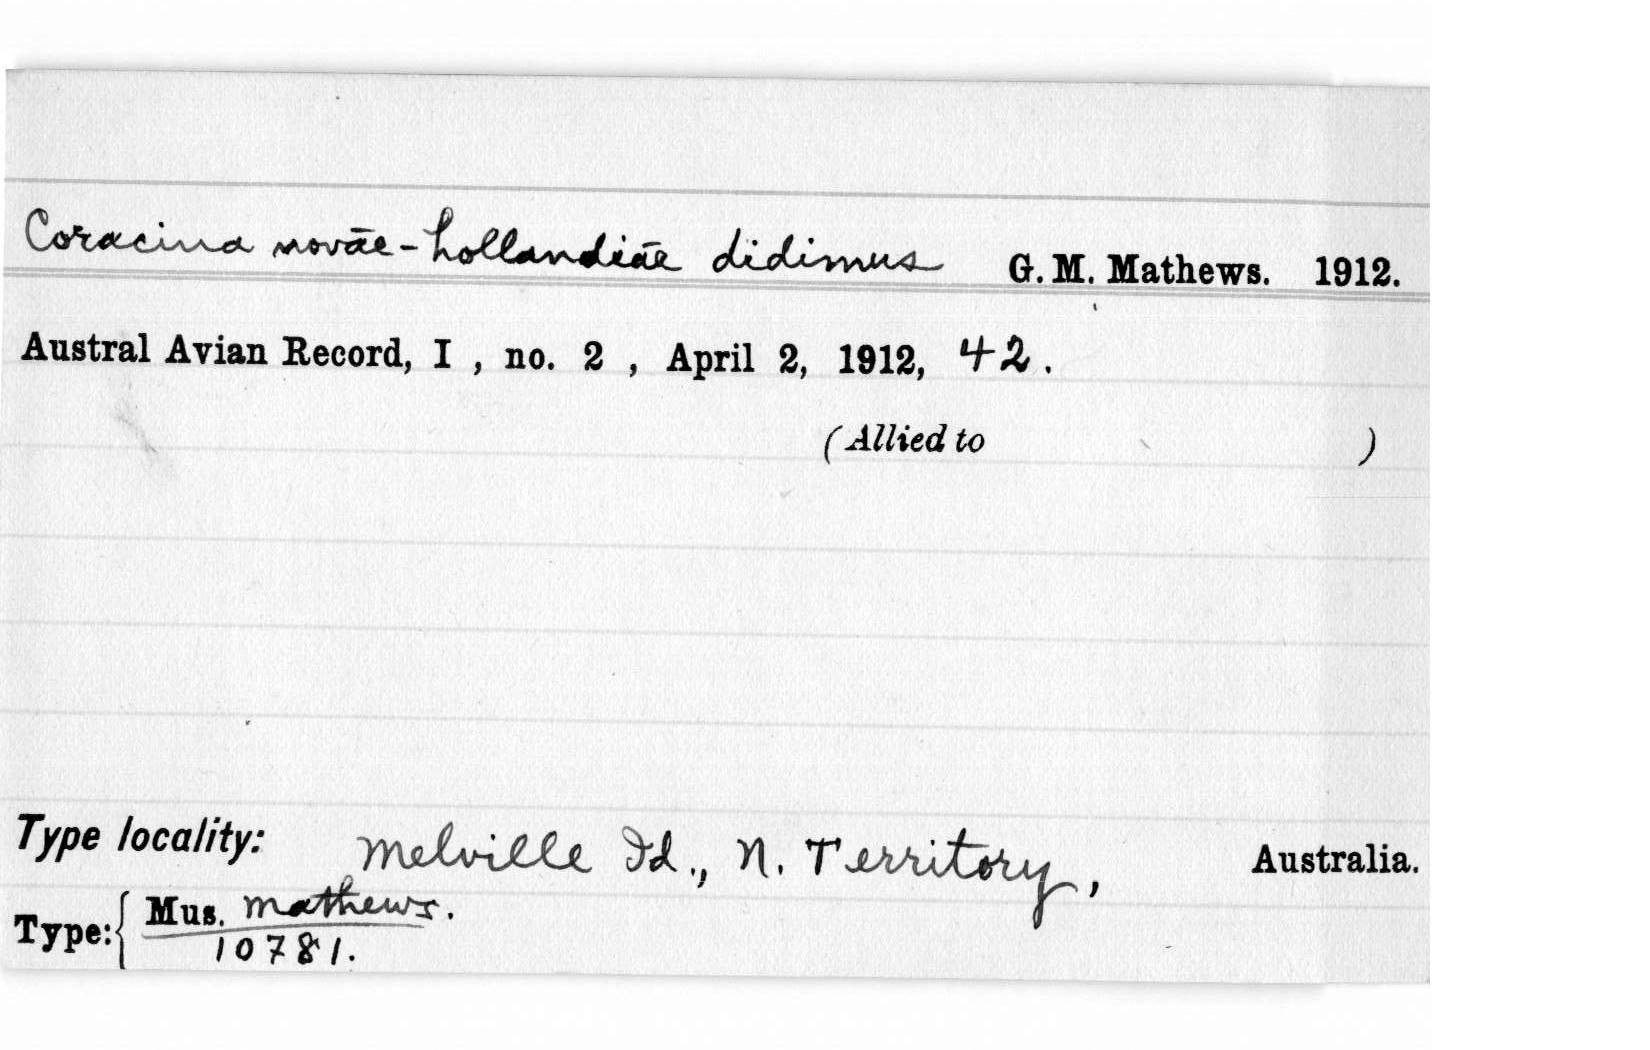 Coracina novāe-hollandiāe didimus G. M. Mathews. 1912.
Austral Avian Record, I , no. 2 , April 2, 1912, 42.
(Allied to )
Type locality: Melville Id., N. Territory, Australia.
Type: { Mus. Mathews.
10781.